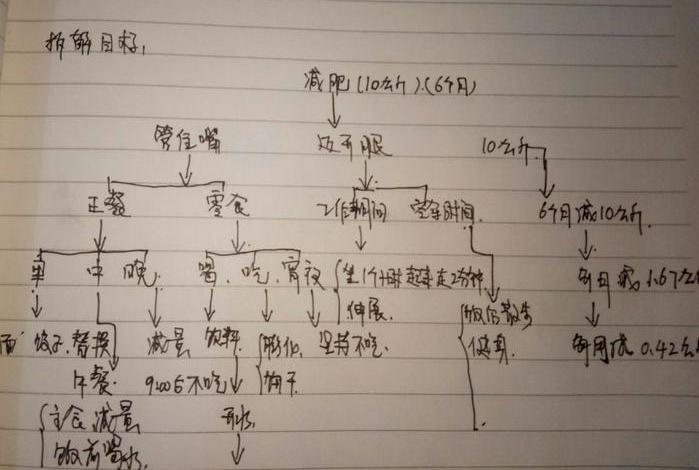 拆解目标,
减肥(10公斤).(6个月)
管住嘴 迈开腿 10公斤
正餐 零食 工作时间 空余时间. 6个月减10公斤.
早 中 晚. 喝. 吃. 宵夜 坐1个小时起来走2分钟 每月减1.67公
伸展. 饭后散步
面 饺子. 替换 减量 饮料. 膨化. 坚持不吃. 健身. 每周减0.42公
午餐. 9:00后不吃 饼干
主食减量
饭前喝水.